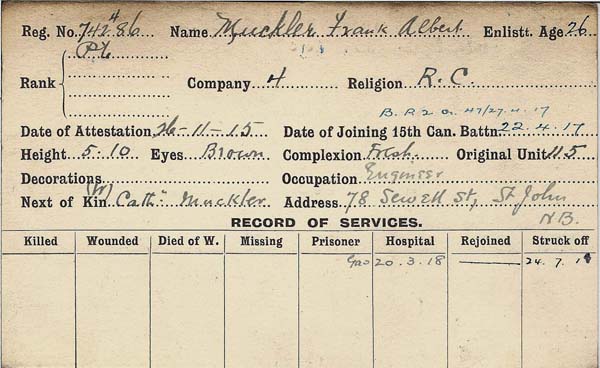 Reg. No. 742486 Name Muckler Frank Albert Enlistt. Age 26
Pt
Rank Company 4 Religion R.C.
B.P. 2 O. 47/27.4.17
Date of Attestation 26-11-15 Date of Joining 15th Can. Battn 22.4.17
Height 5.10 Eyes Brown Complexion Fresh Original Unit 115
Decorations Occupation Engineer
Next of Kin (W) Cath: Muckler Address 78 Sewell St, St John
N.B.
RECORD OF SERVICES.
Killed Wounded Died of W. Missing Prisoner Hospital Rejoined Struck off
Gas 20.3.18 — 24.7.18